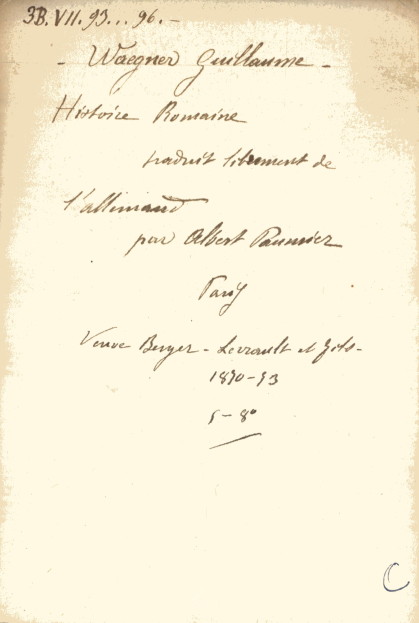 3B. VII. 93... 96. -
- Waegner Guillaume -
Histoire Romaine
traduit librement de
l'allemand
par Albert Paumier
Paris
Veuve Berger - Levrault et fils -
1870 - 73
8°
C